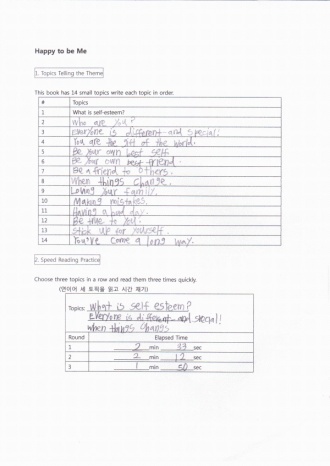 Happy to be Me
1. Topics Telling the Theme
This book has 14 small topics write each topic in order.
# Topics
1 What is self-esteem?
2 Who are you?
3 Everyone is different and special!
4 You are the gift of the world.
5 Be your own best self.
6 Be your own best friend.
7 Be a friend to others.
8 When things change.
9 Loving your family.
10 Making mistakes.
11 Having a bad day.
12 Be true to you.
13 Stick up for yourself.
14 You've come a long way.
2. Speed Reading Practice
Choose three topics in a row and read them three times quickly.
(연이어 세 토픽을 읽고 시간 재기)
Topics: What is self esteem?
Everyone is different and special!
When things change
Round Elapsed Time
1 2 min 33 sec
2 2 min 12 sec
3 1 min 50 sec